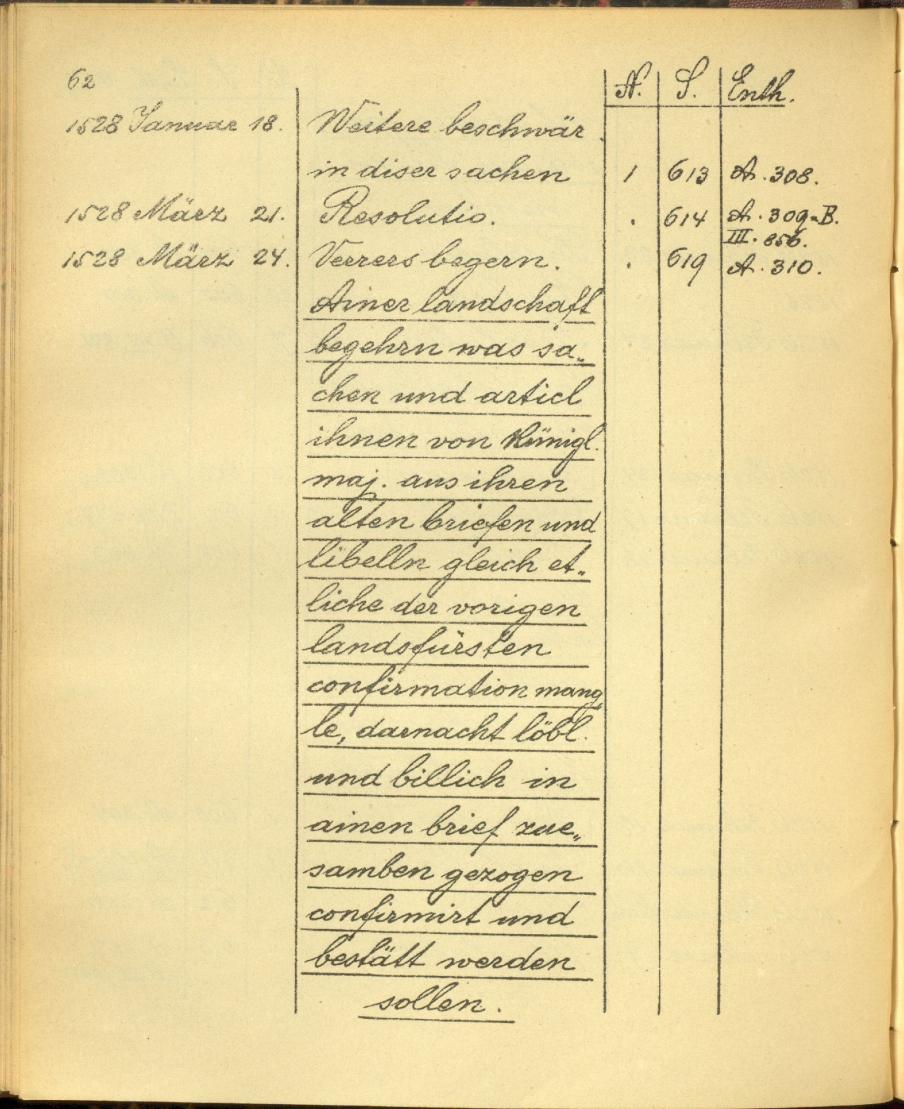 62
N. S. Enth.
1528 Januar 18. Weitere beschwär
in diser sachen 1 613 A. 308.
1528 März 21. Resolutio. . 614 A. 309-B.
III. 856.
1528 März 24. Verrers begern. . 619 A. 310.
Ainer landschaft
begehrn was sa„
chen und articl
ihnen von Künigl.
maj. aus ihren
alten briefen und
libelln gleich et„
liche der vorigen
landsfürsten
confirmation mang„
le, darnacht löbl.
und billich in
ainen brief zue„
samben gezogen
confirmirt und
bestätt werden
sollen.